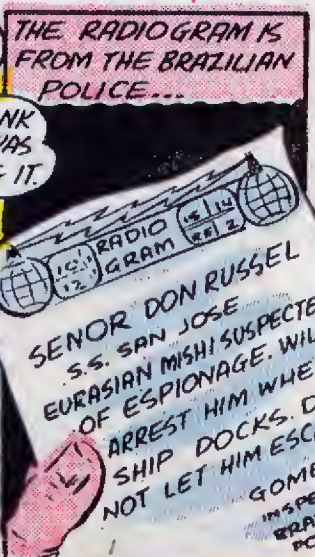 THE RADIOGRAM IS
FROM THE BRAZILIAN
POLICE...
IT.
RADIO
GRAM
SENOR DON RUSSEL
S.S. SAN JOSE
EURASIAN MISHI SUSPECTE
OF ESPIONAGE. WIL
ARREST HIM WHE
SHIP DOCKS. D
NOT LET HIM ESC
GOME
INSPE
BRA
PO